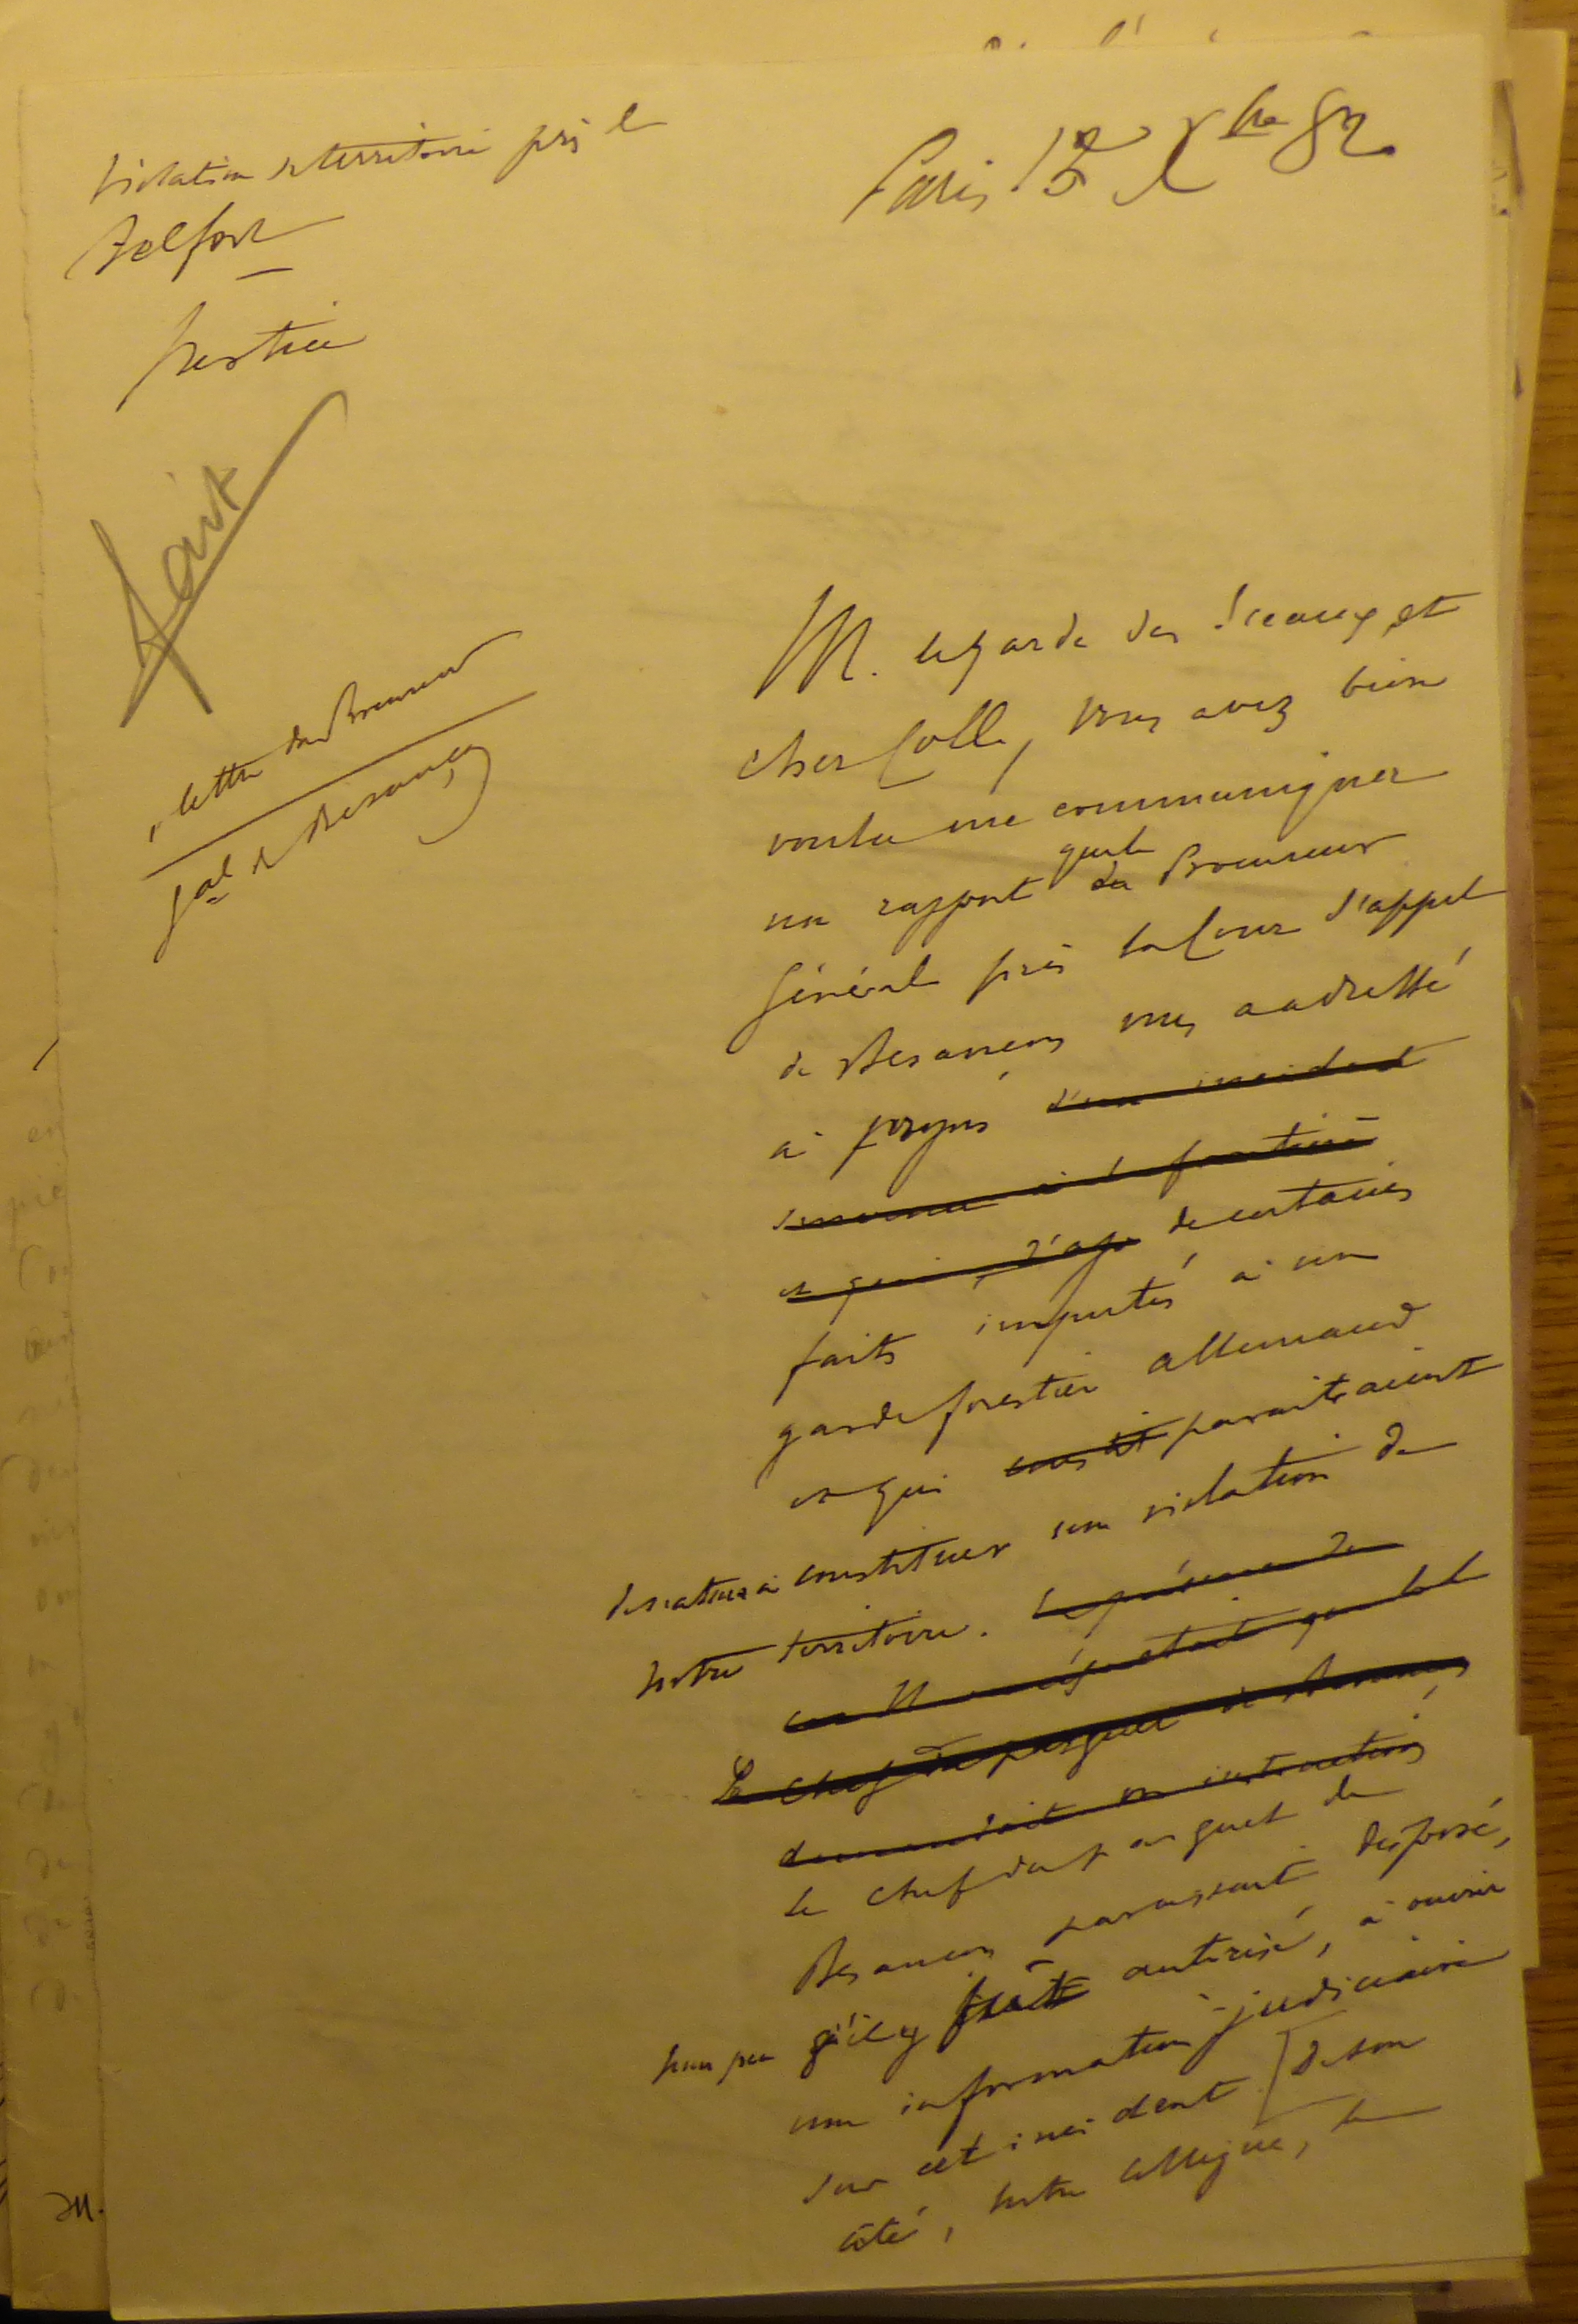 Violation de territoire près le
Belfort
Justice
fait
Paris 15 Xbre 82
1 lettre du Procureur
gal de Besançon
M. le garde des Sceaux et
cher Coll., vous avez bien
voulu me communiquer
un rapport que le du Procureur
Général près la Cour d'appel
de Besançon vous a adressé
à propos d'un incident
survenu à la frontière
et qui, d'ap de certains
faits imputés à un
garde forestier allemand
et qui paraitraient
de nature à constituer une violation de
notre territoire.
Le chef du parquet de Besançon
demandait des instructions
le chef du parquet de
Besançon paraissait disposé,
pour peu qu'il y fut autorisé, à ouvrir
une information judiciaire
sur cet incident [de son
côté, notre collègue, le